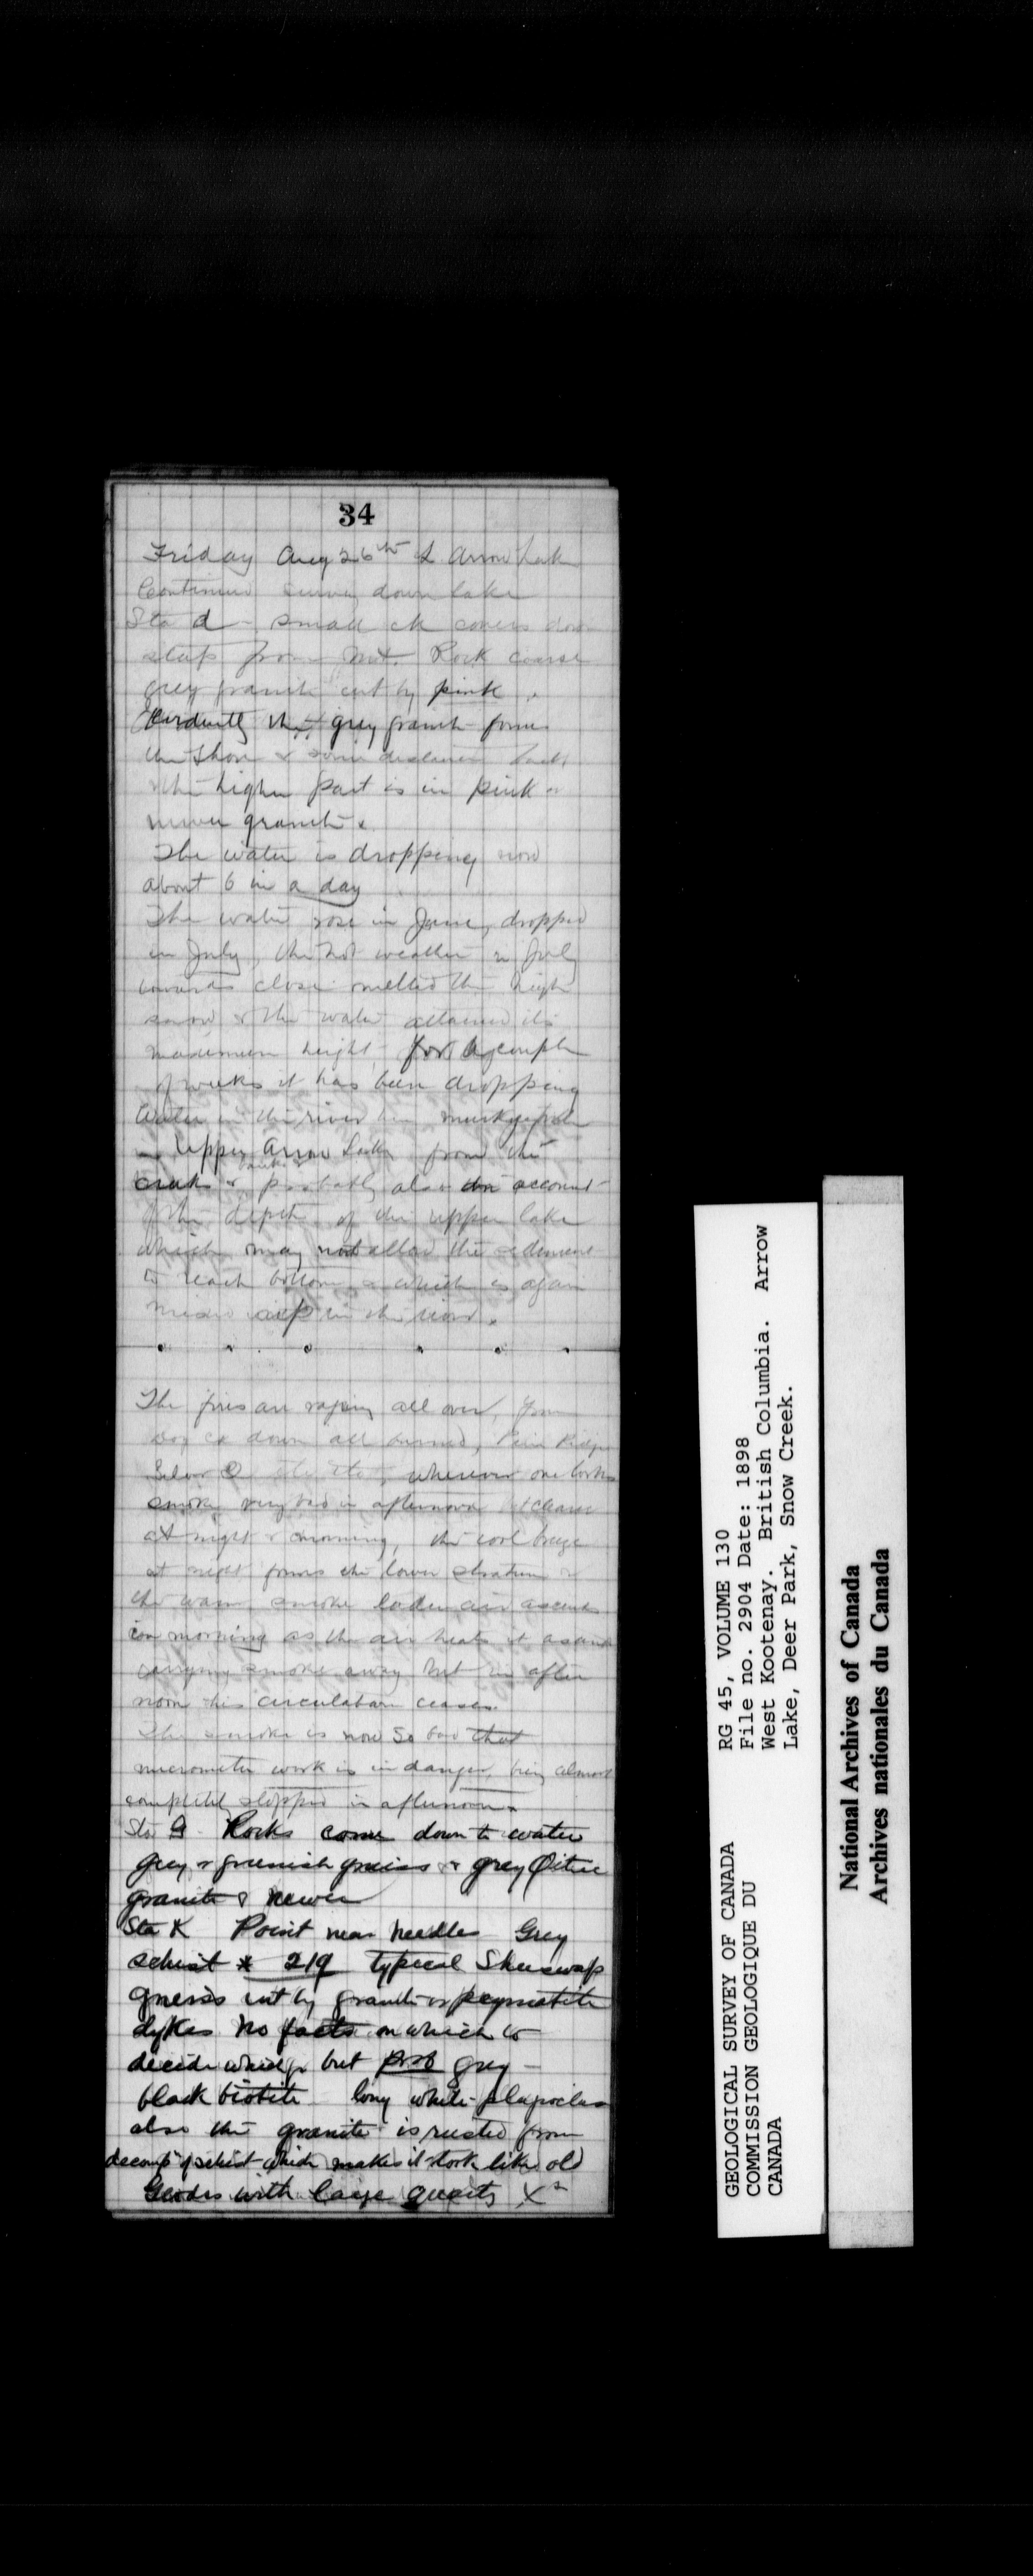 34
Friday Aug 26th L Arrow Lake
Continued survey down lake
Sta d - small ck comes down
steep from Mt. Rock coarse
grey granite cut by pink.
Evidently the grey granite forms
the shore & some distance back
& the higher part is in pink &
newer granite.
The water is dropping now
about 6 in a day
The water rose in June, dropped
in July, the hot weather in July
towards close melted the high
snow & the water attained its
maximum height for a couple
of weeks it has been dropping
Water in the river
Upper Arrow Lake from the
banks &
creeks & probably also on account
of the depth of the upper lake
which may not allow the sediment
to reach bottom & which is again
mixed up in the river.
The fires are raging all over, from
Dog Ck down all burned,
wherever one looks
smoke very bad in afternoon but clears
at night & morning, the cool breeze
at night forms the lower stratum &
the warm smoke laden air ascends
in morning as the air heats it ascends
carrying smoke away but in after
noon this circulation ceases.
The smoke is now so bad that
micrometer work is in danger, being almost
completely stopped in afternoon.
Sta G Rocks come down to water
grey & greenish gneiss & grey
granite & newer
Sta K Point near Needles Grey
schist * 219 typical Shuswap
gneiss cut by granite & pegmatite
dykes No facts on which to
decide which but prob grey -
black biotite long white plagioclas
also the granite is rusted from
decomp of schist which makes it look like old
Geodes with large quartz Xs
GEOLOGICAL SURVEY OF CANADA
COMMISSION GEOLOGIQUE DU
CANADA
RG 45, VOLUME 130
File no. 2904 Date: 1898
West Kootenay. British Columbia. Arrow
Lake, Deer Park, Snow Creek.
National Archives of Canada
Archives nationales du Canada